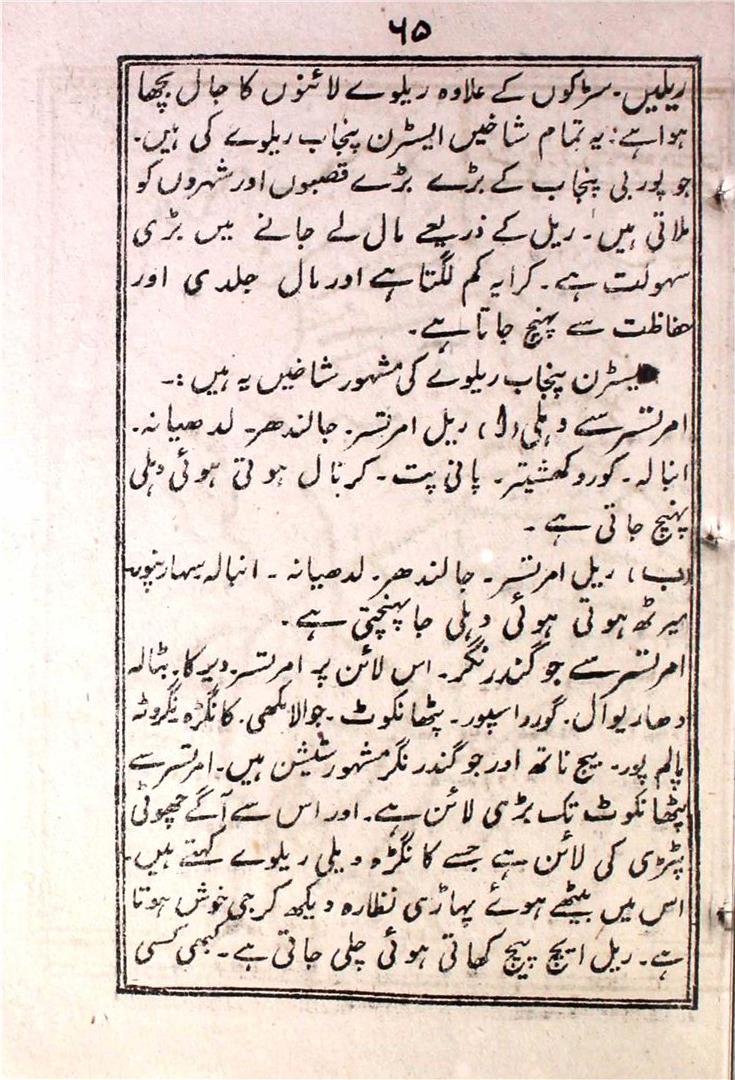 ۶۵
ریلیں۔ سڑکوں کے علاوہ ریلوے لائنوں کا جال بچھا
ہوا ہے: یہ تمام شاخیں ایسٹرن پنجاب ریلوے کی ہیں۔
جو پوربی پنجاب کے بڑے بڑے قصبوں اور شہروں کو
ملاتی ہیں۔ ریل کے ذریعے مال لے جانے میں بڑی
سہولت ہے۔ کرایہ کم لگتا ہے اور مال جلدی اور
حفاظت سے پہنچ جاتا ہے۔
ایسٹرن پنجاب ریلوے کی مشہور شاخیں یہ ہیں :۔
امرتسر سے دہلی (ا) ریل امرتسر۔ جالندھر۔ لدھیانہ۔
انبالہ۔ کوروکھشیتر۔ پانی پت۔ کرنال ہوتی ہوئی دہلی
پہنچ جاتی ہے ۔
(ب) ریل امرتسر۔ جالندھر۔ لدھیانہ ۔ انبالہ سہارنپور
میرٹھ ہوتی ہوئی دہلی جا پہنچتی ہے۔
امرتسر سے جوگندر نگر۔ اس لائن پر امرتسر۔ ویرکا۔ بٹالہ
دھاریوال۔ گورداسپور۔ پٹھانکوٹ ۔ جوالامکھی۔ کانگڑہ نگروٹہ
پالم پور۔ بیج ناتھ اور جوگندر نگر مشہور سٹیشن ہیں۔ امرتسر سے
پٹھانکوٹ تک بڑی لائن ہے۔ اور اس سے آگے چھوٹی
پٹڑی کی لائن ہے جسے کانگڑہ ویلی ریلوے کہتے ہیں۔
اس میں بیٹھے ہوئے پہاڑی نظارہ دیکھ کر جی خوش ہوتا
ہے۔ ریل ایچ پیچ کھاتی ہوئی چلی جاتی ہے۔ کبھی کسی